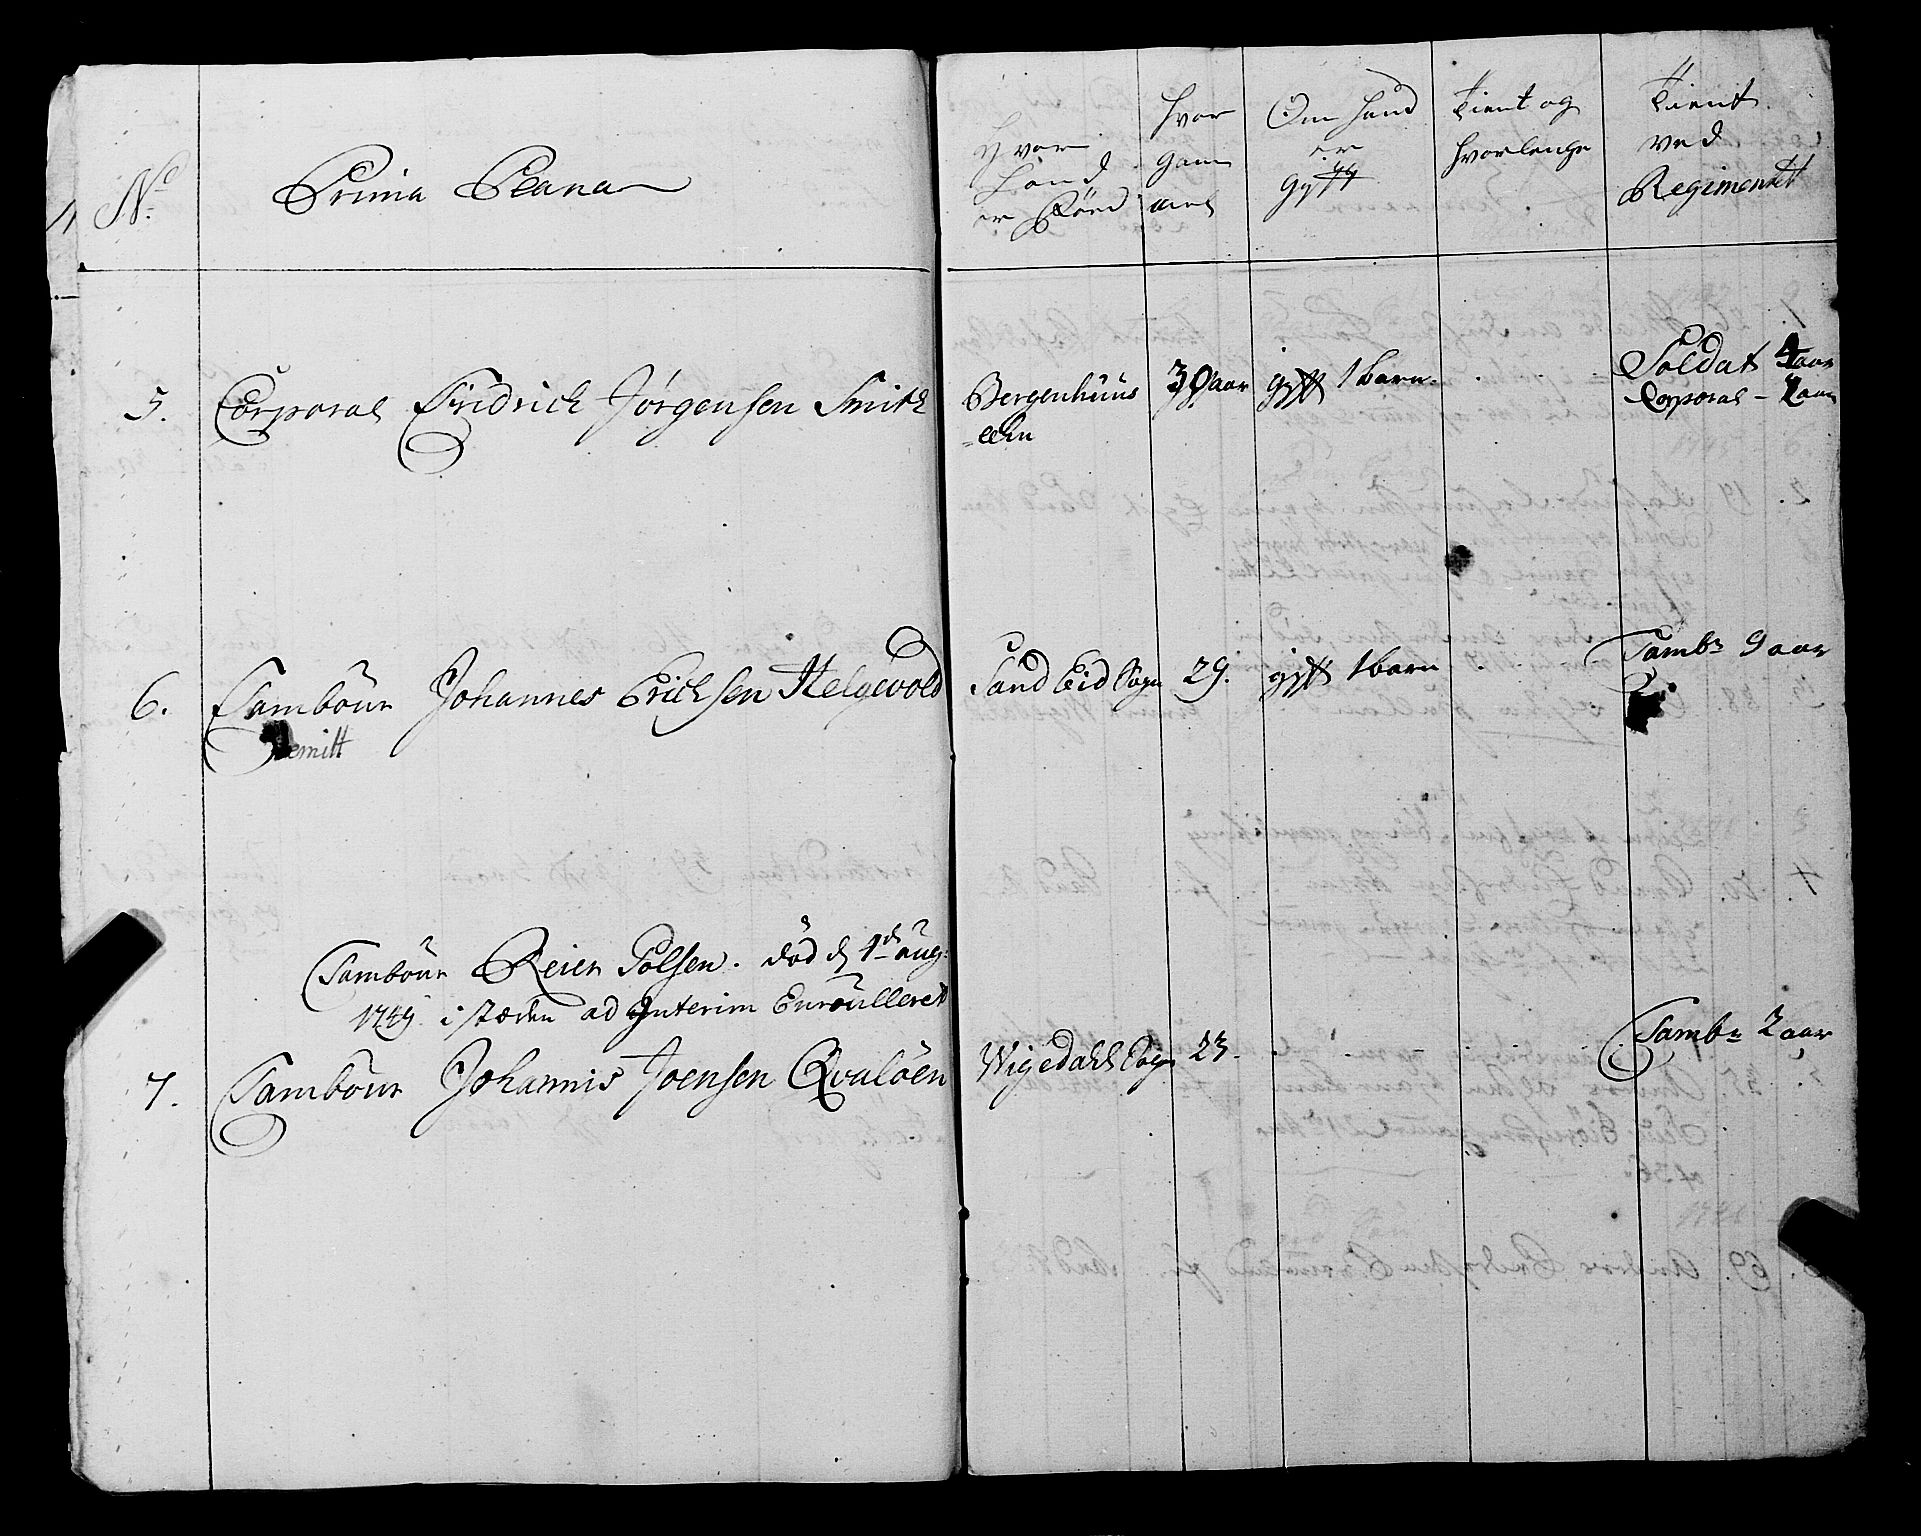 No. Prima Plana
Hvor hand er Född
Hvor gammel
Om hand er Gyfft
Tient og hvorlenge
Tient ved Regimentet
5. Corporal Fridrich Jørgensen Smith Bergenhuus 39 aar gyfft 1 barn. Soldat 4 aar
Corporal -
6. Tambour Johannes Erichsen Helgevold Sand Eid Sogn 29. gyfft 1 barn Tambr 9 aar
Tambour Reier Polsen. død d 1de aug:
1749. i stæden ad Interim Enroulleret
7. Tambour Johannis Joensen Qvaløen Wigedahl Sogn 23. Tambr 2 aar